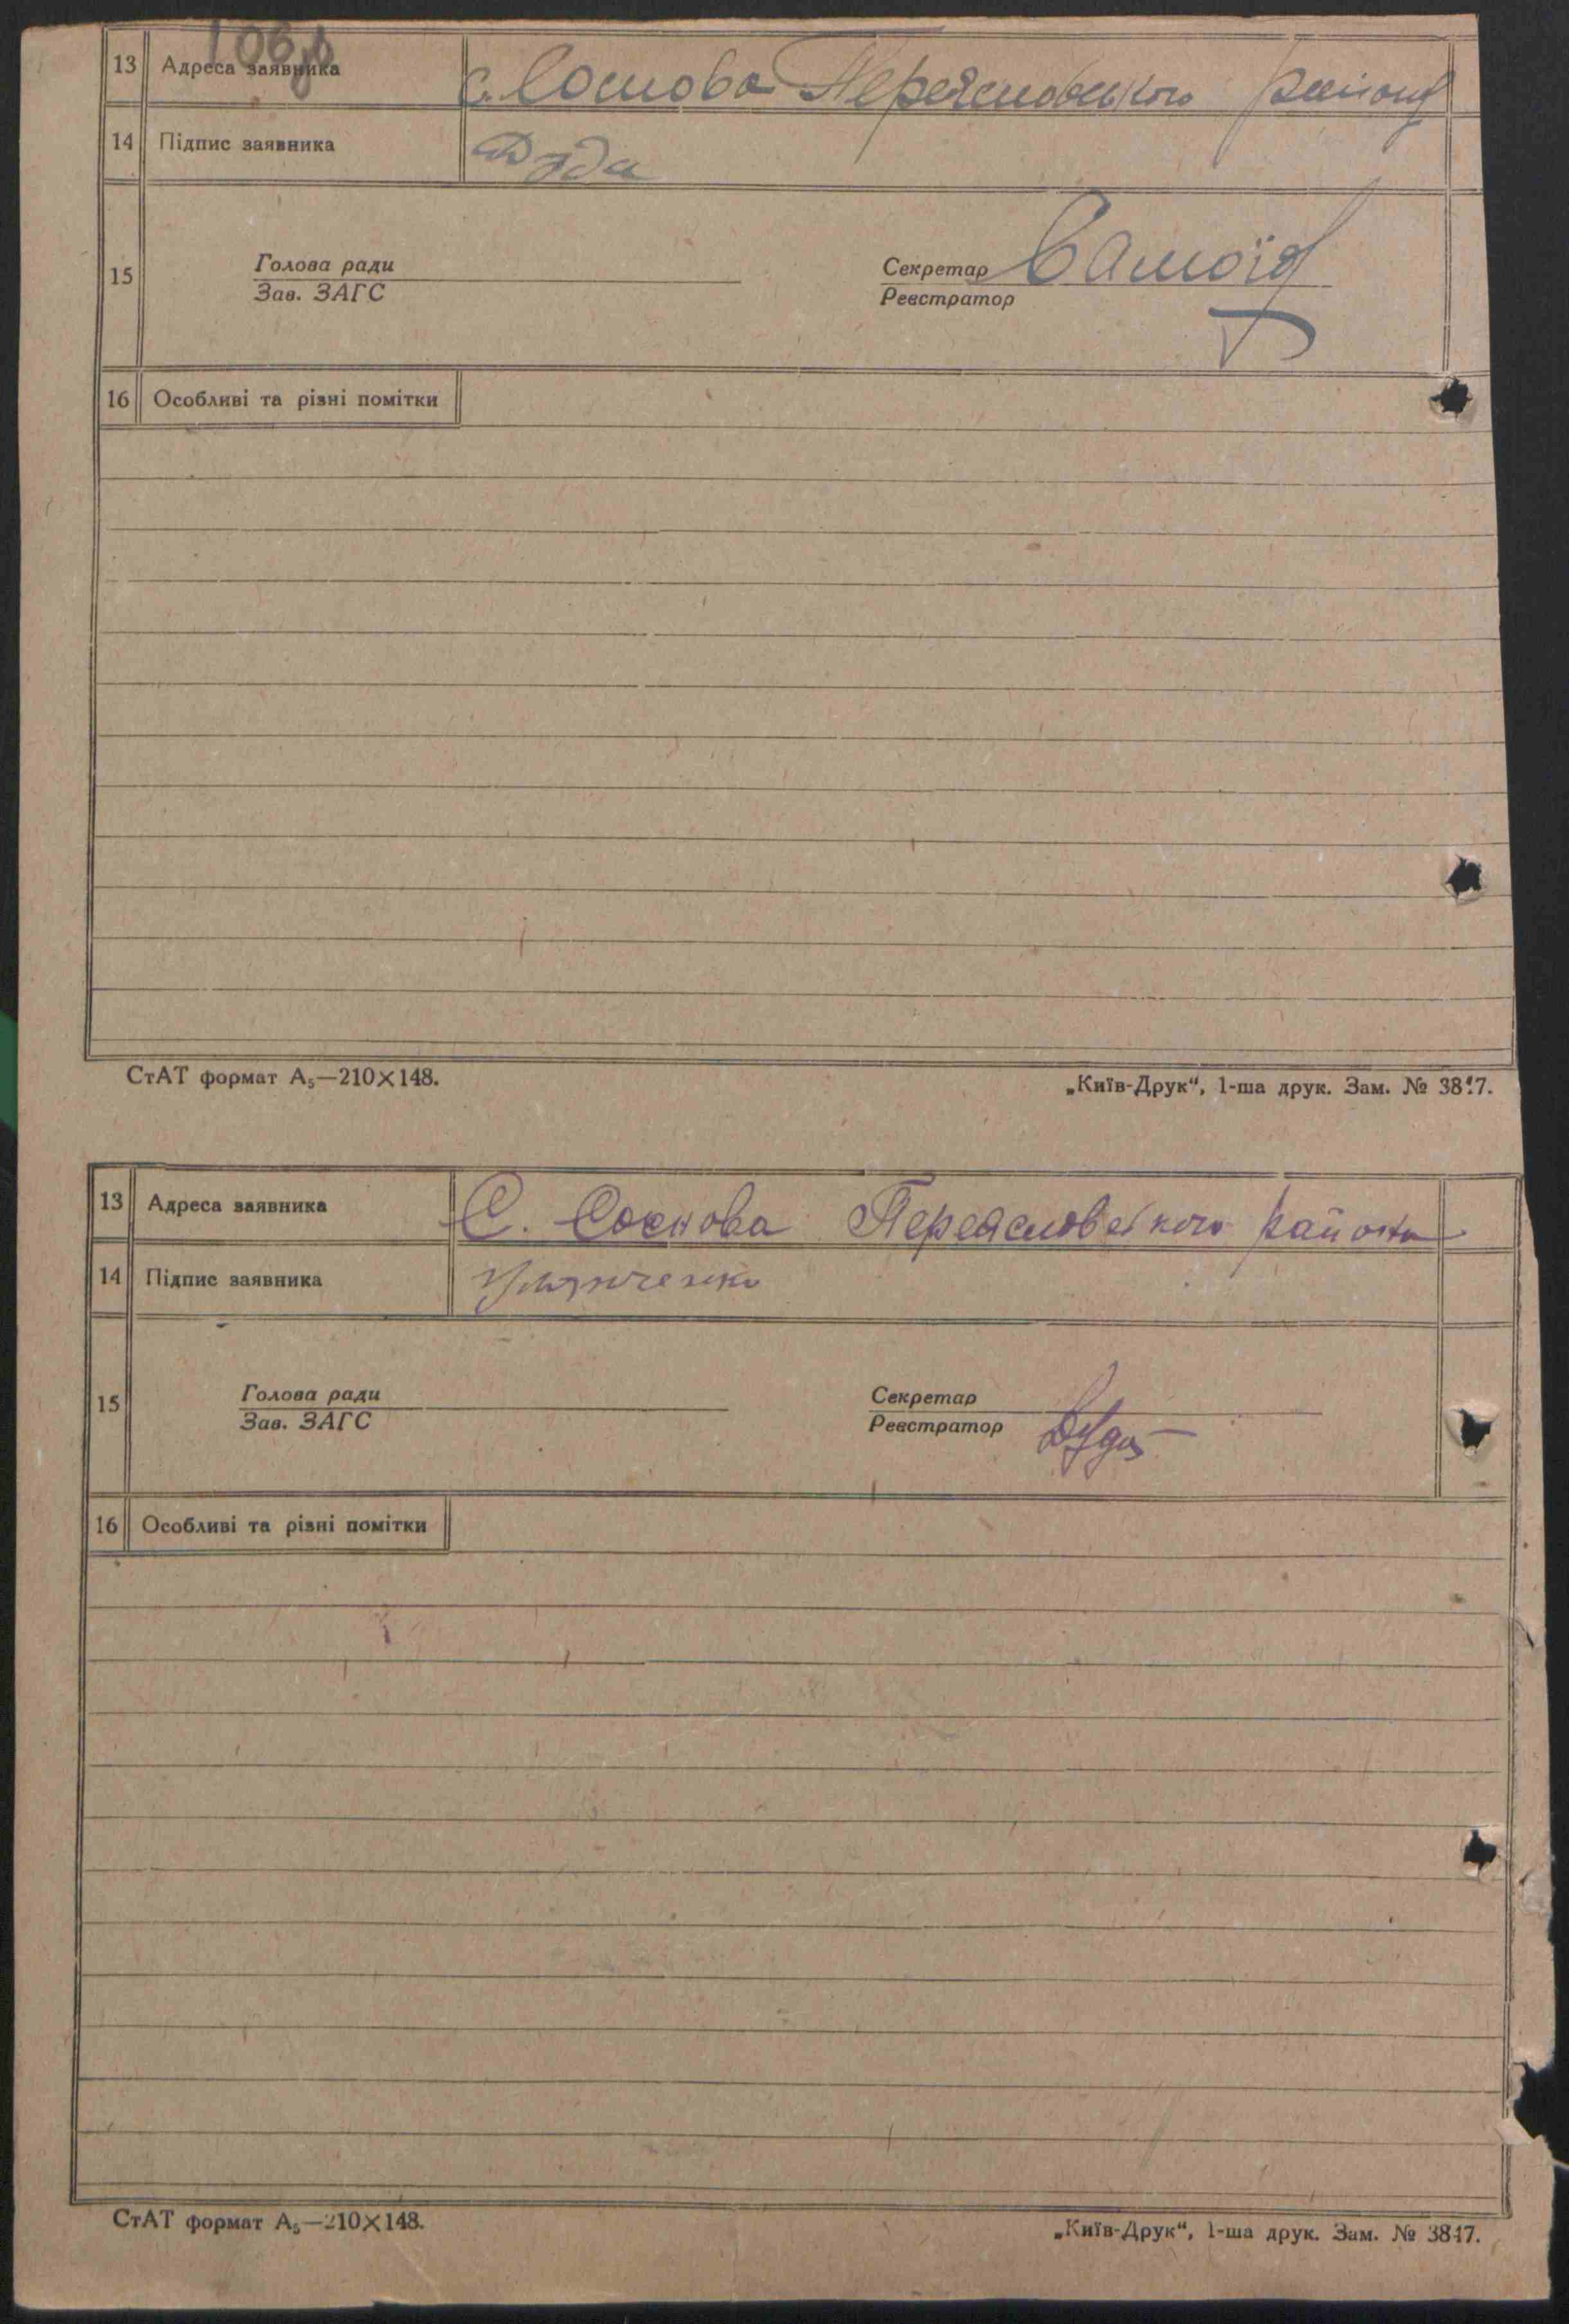 13 Адреса заявника с. Соснова Переяславського району
14 Підпис заявника
15 Голова ради Секретар Самойд
Зав. ЗАГС Реєстратор
16 Особливі та різні помітки
СтАТ формат А₅—210×148. „Київ-Друк“, 1-ша друк. Зам. № 3817.
13 Адреса заявника С. Соснова Переяславського району
14 Підпис заявника
15 Голова ради Секретар
Зав. ЗАГС Реєстратор
16 Особливі та різні помітки
СтАТ формат А₅—210×148. „Київ-Друк“, 1-ша друк. Зам. № 3817.